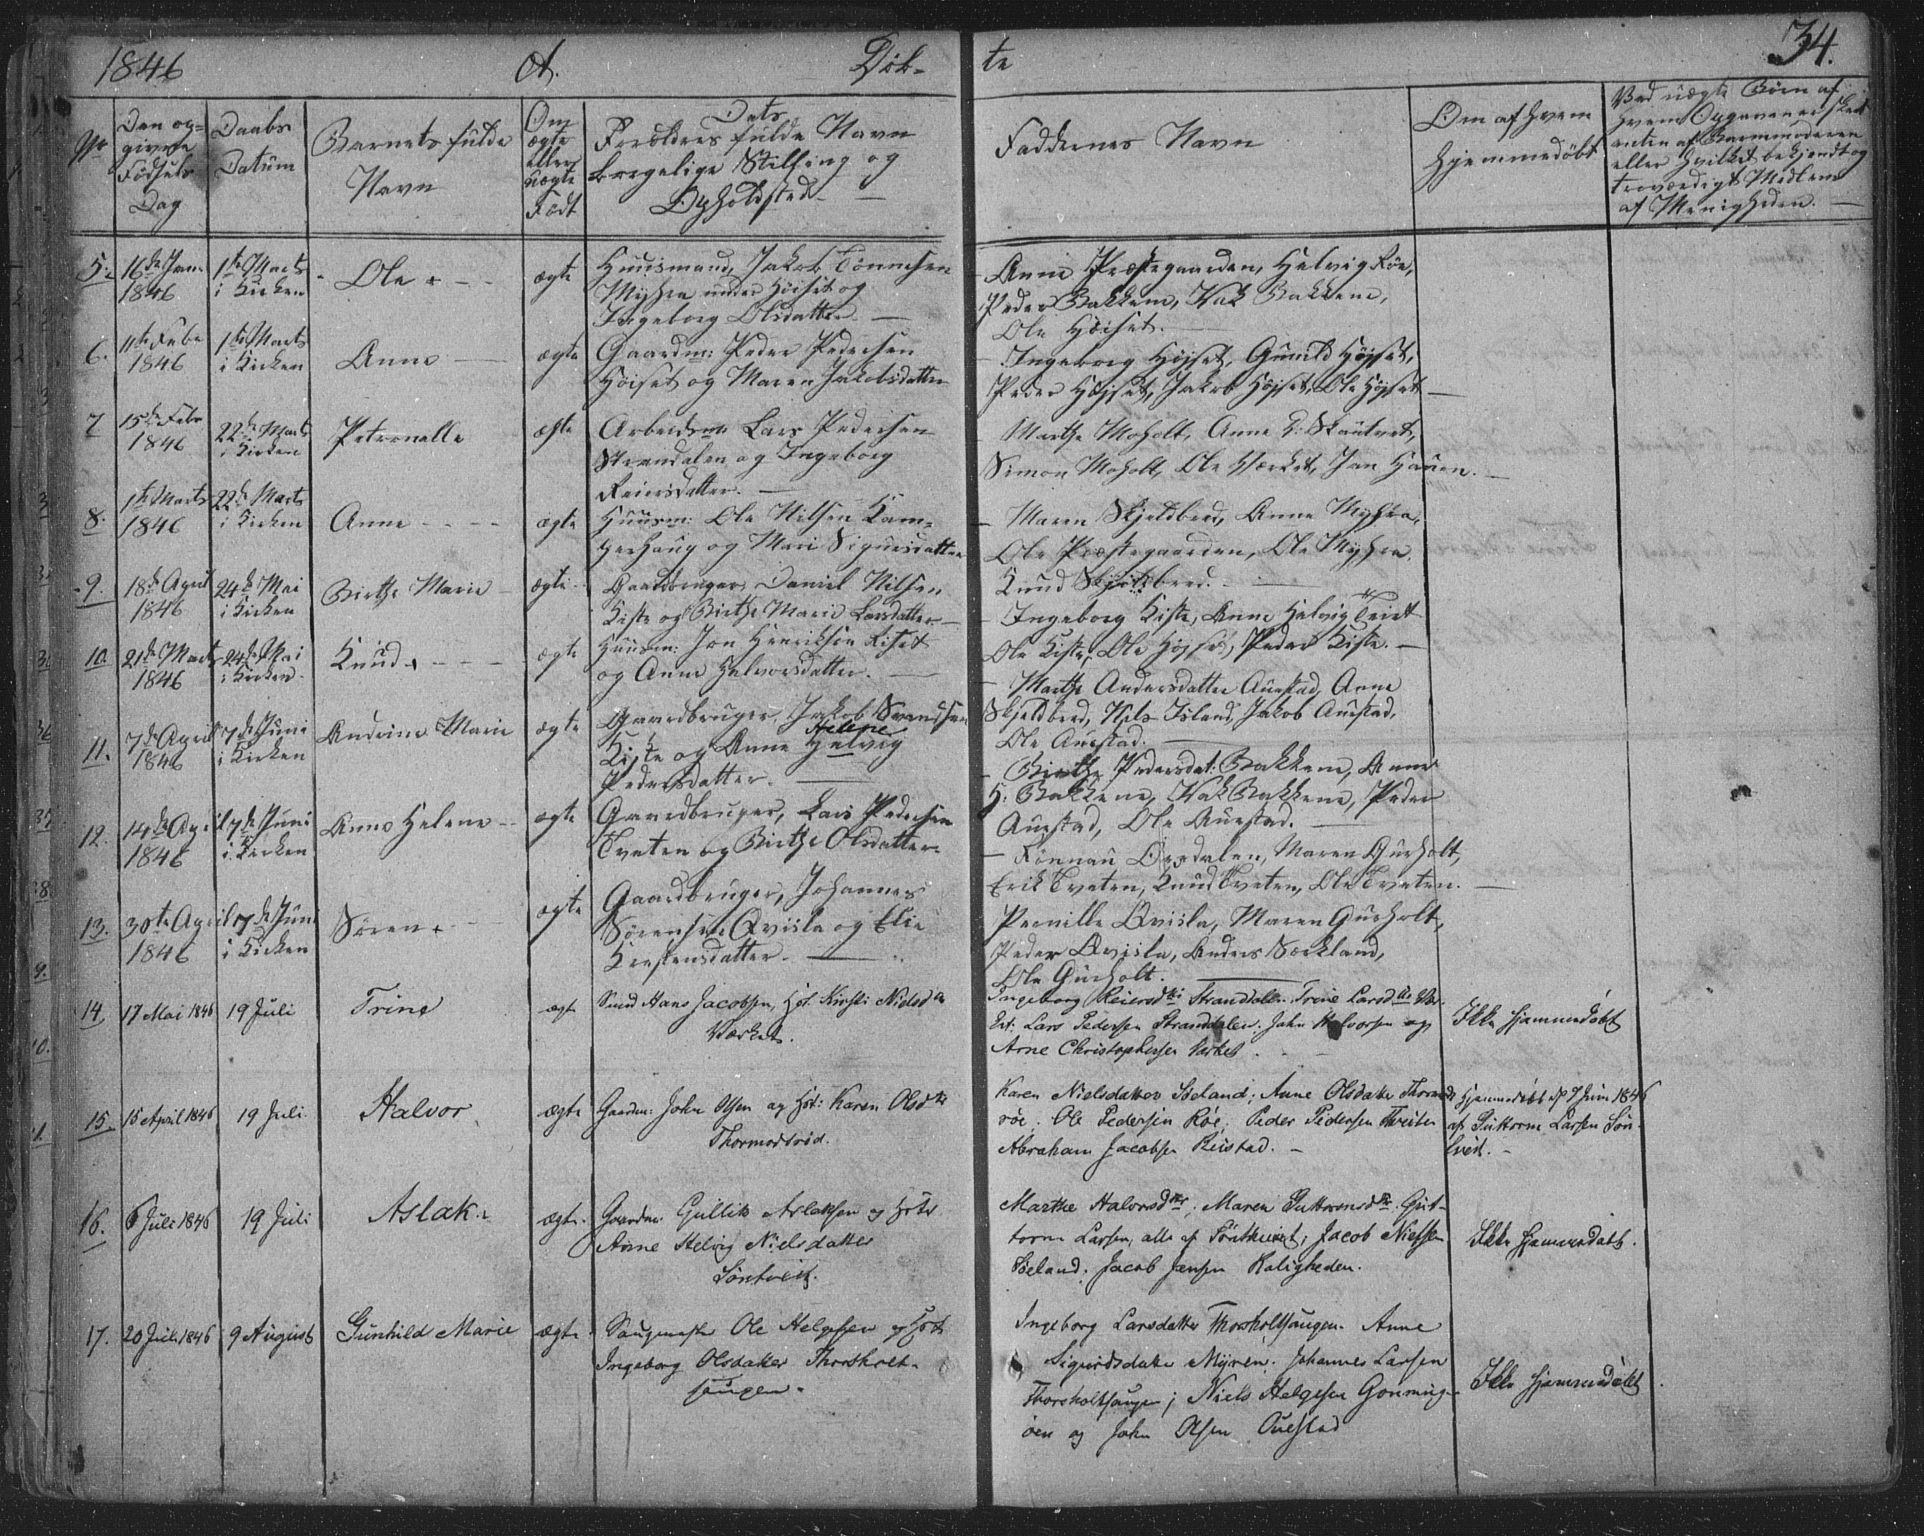 1846 A. Døb-
te 34.
No
Den op-
givne
Fødsels
Dag
Daabs
Datum
Barnets fulde
Navn
Om
ægte
eller
uægte
Født
Dets
Forældres fulde Navn
borgelige Stilling og
Opholdsted
Faddernes Navn
Om af hvem
hjemmedøbt
Ved uægte Børn af
hvem Opgaven er skeet
enten af Barnmoderen
eller hvilket bekjendt og
troværdigt Medlem
af Menigheden.
5. 16de Jan. 1846
1te Marts i Kirken
Ole
ægte
Huusmand, Jakob Tønnesen
Myhra under Høiset og
Ingeborg Olsdatter
Anne Præstegaarden, Helvig Røe,
Peder Bakkene, Isak Bakkene,
Ole Høiset.
6. 11te Febr 1846
1te Marts i Kirken
Anne
ægte
Gaardm: Peder Pedersen
Høiset og Maren Jakobsdatter
Ingeborg Høiset, Gunild Høiset,
Peder Høiset, Jakob Høiset, Ole Høiset
7 15de Febr 1846
22de Marts i Kirken
Petronelle
ægte
Arbeidsm: Lars Pedersen
Strandalen og Ingeborg
Reiersdatter.
Marthe Moholt, Anne Skautvet,
Simon Moholt, Ole Værket, Jan Hauen.
8. 1te Marts 1846
22de Marts i Kirken
Anne
ægte
Huusm: Ole Nilsen Kam-
perhaug og Mari Sigursdatter
Maren Skjeldbred, Anne Myhra,
Ole Præstegaarden, Ole Myhra,
Knud Skjeldbred.
9. 18de April 1846
24de Mai i Kirken
Birthe Marie
ægte
Gaardbruger Daniel Nilsen
Kiste og Birthe Marie Larsdatter
Ingeborg Kiste, Anne Helvig Tveit
Ole Kiste, Ole Høiset, Peder Kiste.
10. 21de Marts 1846
24de Mai i Kirken
Knud
ægte
Huusm: Jon Henriksen Riset
og Anne Halvorsdatter.
Marthe Andersdatter Auestad, Anne
Skjeldbred, Nils Island, Jakob Auestad,
Ole Auestad.
11. 7de April 1846
7de Juni i Kirken
Andrine Marie
ægte
Gaardbruger, Jakob Svendsen
Kiste og Anne Helvig Helene
Pedersdatter.
Birthe Pedersdat: Bakkene, Anne
H: Bakkene, Isak Bakkene, Peder
Auestad, Ole Auestad.
12. 14de April 1846
7de Juni i Kirken
Anne Helene
ægte
Gaardbruger, Lars Pedersen
Tveten og Birthe Olsdatter
Rønnau Ørsdalen, Maren Gurholt,
Erik Tveten, Knud Tveten, Ole Tveten.
13. 30te April 1846
7de Juni i Kirken
Søren
ægte
Gaardbruger, Johannes
Sørensen Qvisla og Elie
Kirstensdatter.
Pernille Qvisla, Maren Gurholt,
Peder Qvisla, Anders Nordland,
Ole Gurholt.
14. 17 Mai 1846
19 Juli
Trine
ægte
Smed Hans Jacobsen, Hst. Kirsti Nielsdtr
Værket.
Ingeborg Reiersdtr Stranddalen. Trine Larsdtr Vær-
ket: Lars Pedersen Stranddalen. John Halvorsen og
Arne Christophersen Værket.
Ikke hjemmedøbt
15. 15 April 1846
19 Juli
Halvor
ægte
Gaardm: John Olsen og Hst: Karen Olsdtr
Thormodsrød.
Karen Nielsdatter Søeland; Anne Olsdatter Thormods-
røe. Ole Pedersen Røe. Peder Pedersen Tveten
Abraham Jacobsen Rustad.
Hjemmedøbt d 7 Juni 1846
af Guttorm Larsen Søn-
tveit.
16. 6 Juli 1846
19 Juli
Aslak
ægte
Gaardm. Gullik Aslaksen og Hstr
Anne Helvig Nielsdatter
Søntveit.
Marthe Halvorsdtr, Maren Guttormsdtr. Gut-
torm Larsen, alle af Søntveit; Jacob Nielsen
Søeland. Jacob Jensen Roligheden.
Ikke hjemmedøbt.
17. 20 Juli 1846
9 August
Gunhild Marie
ægte
Saugmester Ole Helgesen og Hst:
Ingeborg Olsdatter Thorsholt-
saugen.
Ingeborg Larsdatter Thorsholtsaugen. Anne
Sigurdsdatter Myren. Johannes Larsen
Thorsholtsaugen; Niels Helgesen Gonning-
øen og John Olsen Ouestad
Ikke hjemmedøbt